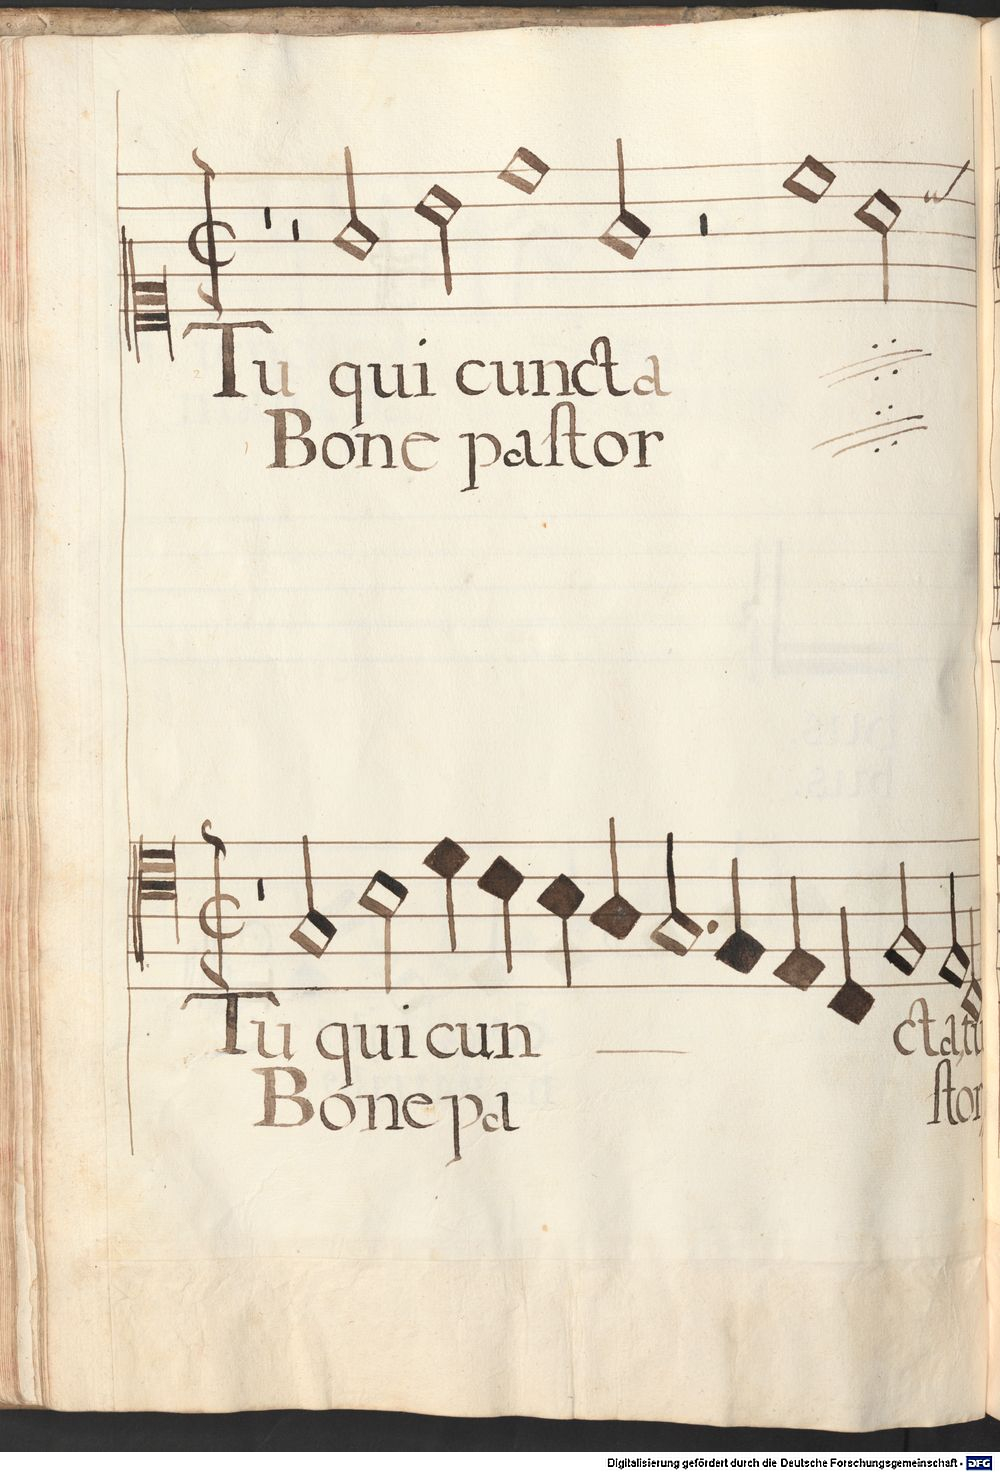 Tu qui cuncta
Bone paſtor
Tu qui cun cta, tu
Bone pa ſtor,
Digitalisierung gefördert durch die Deutsche Forschungsgemeinschaft - DFG